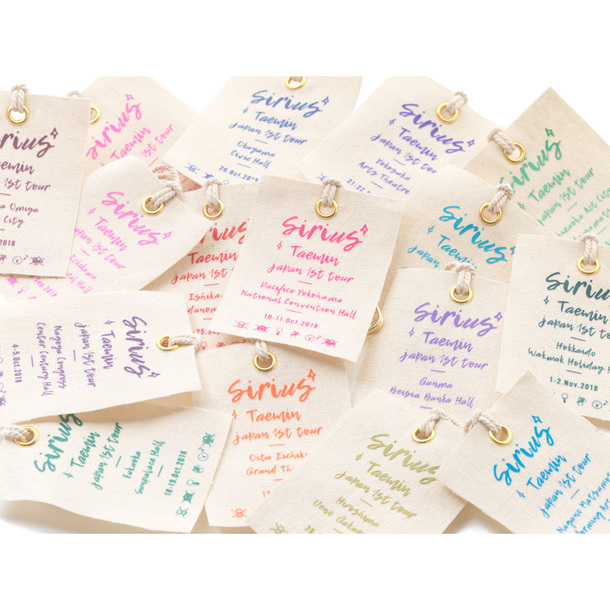 Sirius
Taemin
Japan 1st tour
2018
Sirius
Taemin
Japan 1st tour
Sirius
Taemin
Japan 1st tour
Okayama
Civic Hall
Sirius
Taemin
Japan 1st tour
Yokosuka
Arts Theatre
Sirius
Taemin
Japan 1st tour
Sirius
Taemin
Japan 1st tour
Sirius
Taemin
Japan 1st tour
Sirius
Taemin
Japan 1st tour
Pacifico Yokohama
National Convention Hall
10-11.Oct.2018
Sirius
Taemin
Japan 1st tour
Sirius
Taemin
Japan 1st tour
Hokkaido
1-2.Nov.2018
Sirius
Taemin
Japan 1st tour
Nagoya Congress
Center Century Hall
4-5.Oct.2018
Sirius
Taemin
Japan 1st tour
Gunma
Beisia Bunka Hall
Sirius
Taemin
Japan 1st tour
Fukuoka
Sunpalace Hall
18-19.Oct.2018
Sirius
Taemin
Japan 1st tour
Oita
Grand
Sirius
Taemin
Japan 1st tour
Hiroshima
Ueno
Sirius
Taemin
Japan 1st tour